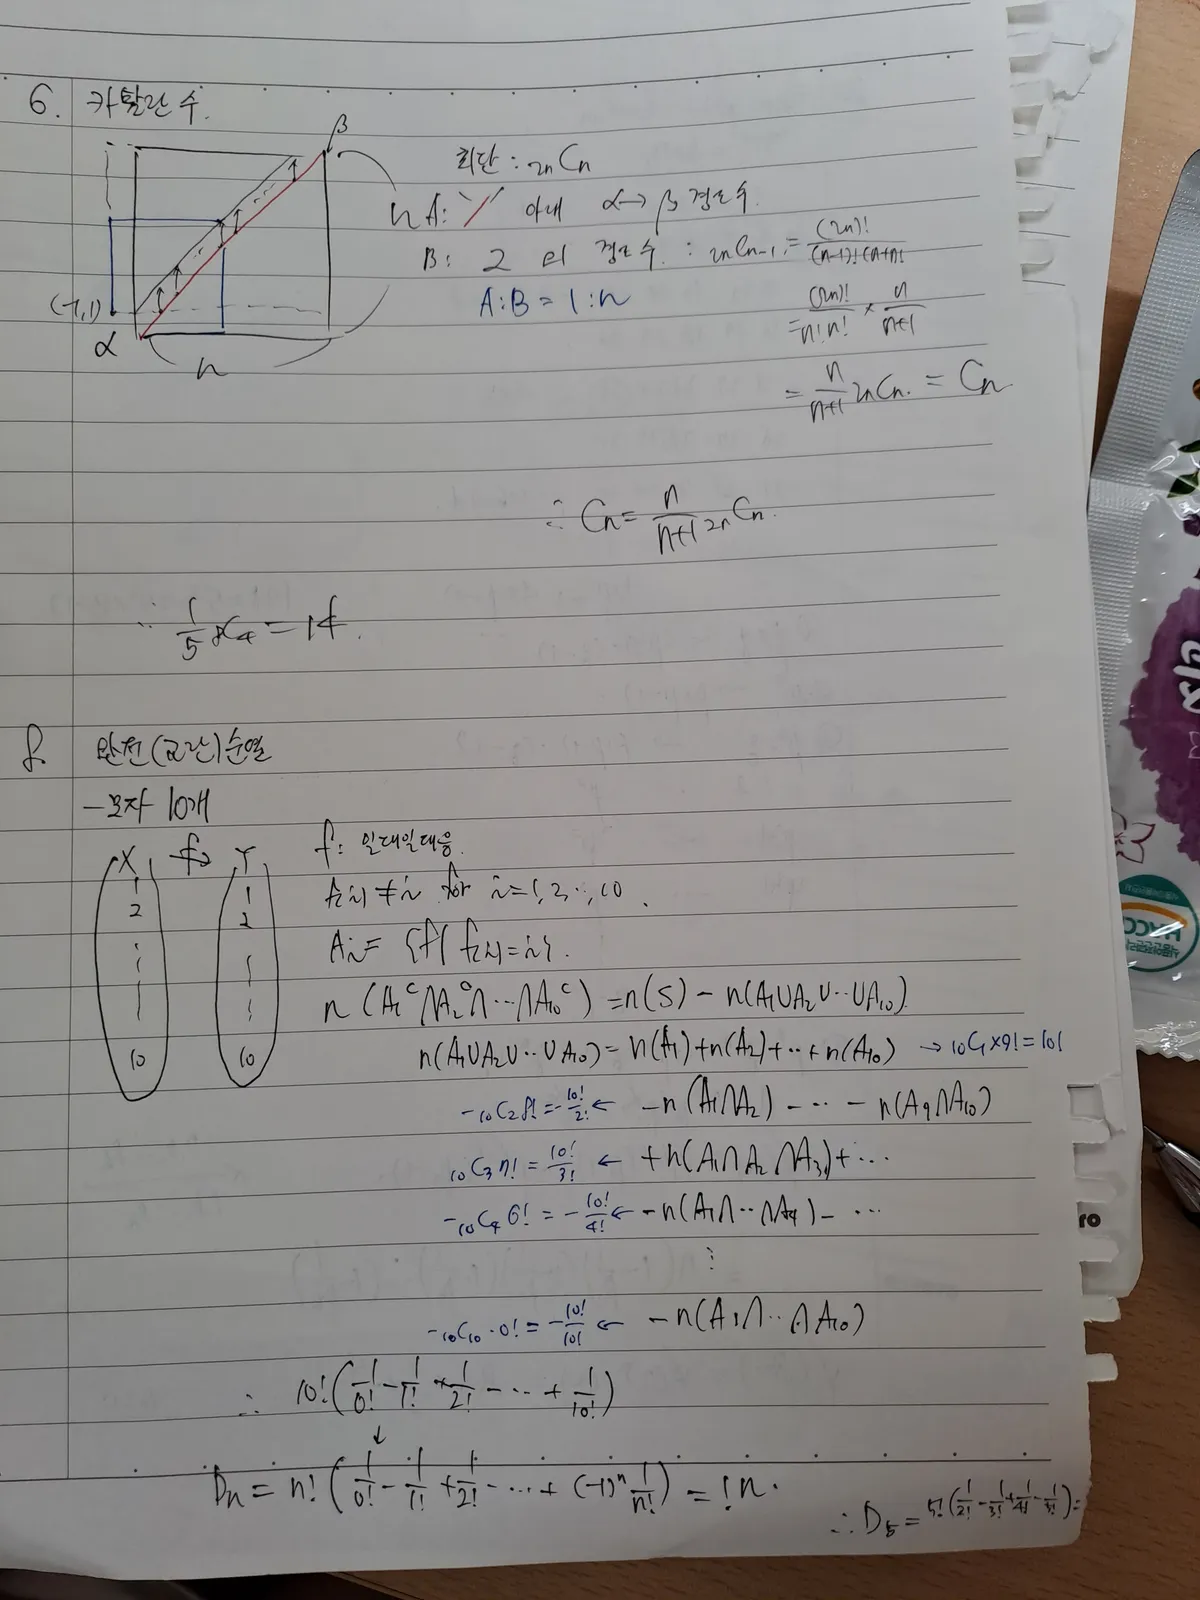 6. 카탈란 수.
β
최단 : 2nCn
n A: 아래 α→β 경로수.
B: 2 의 경로수. : 2nCn-1 = (2n)!/(n-1)!(n+1)!
(-1,1)
A:B = 1:n
= (2n)!/n!n! × n/n+1
α
n
= n/n+1 2nCn. = Cn
∴ Cn = n/n+1 2nCn.
∴ 1/5 8C4 = 14.
8. 완전(교란)순열
-모자 10개
X f→ Y f: 일대일대응.
1 1 f(i) ≠ i for i=1, 2, ··, 10.
2 2
Ai = {f| f(i)=i}.
n (A1ᶜ∩A2ᶜ∩···∩A10ᶜ) = n(S) - n(A1∪A2∪··∪A10).
10 10 n(A1∪A2∪··∪A10) = n(A1)+n(A2)+··+n(A10) → 10C1×9! = 10!
-10C2 8! = -10!/2! ← -n(A1∩A2) - ··· - n(A9∩A10)
10C3 7! = 10!/3! ← +n(A1∩A2∩A3)+···
-10C4 6! = -10!/4! ← -n(A1∩··∩A4) - ···
⋮
-10C10·0! = -10!/10! ← -n(A1∩··∩A10)
∴ 10!(1/0! - 1/1! + 1/2! - ··· + 1/10!)
↓
Dn = n! (1/0! - 1/1! + 1/2! - ··· + (-1)ⁿ 1/n!) = !n.
∴ D5 = 5!(1/2! - 1/3! + 1/4! - 1/5!) =
ro